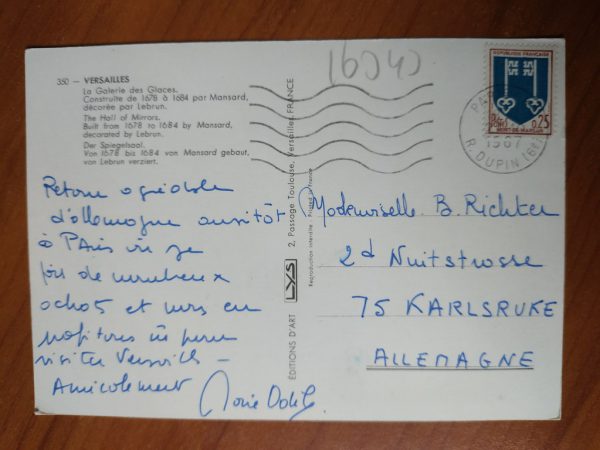 350 - VERSAILLES
La Galerie des Glaces.
Construite de 1678 à 1684 par Mansard,
décorée par Lebrun.
The Hall of Mirrors.
Built from 1678 to 1684 by Mansard,
decarated by Lebrun.
Der Spiegelsaal.
Von 1678 bis 1684 von Mansard gebaut,
von Lebrun verziert.
Retour agréable
d'allemagne aussitôt
à PAris
de nombreux
achats et
visiter Versailles -
Amicalement
Marie Odile
EDITIONS D'ART LYS 2, Passage Toulouse, Versailles FRANCE
Reproduction interdite - Printed in France
16043
REPUBLIQUE FRANÇAISE
0,25
MONT-DE-MARSAN
1967
R. DUPIN (6e)
Mademoiselle B. Richter
2d Nuitstrasse
75 KARLSRUKE
ALLEMAGNE